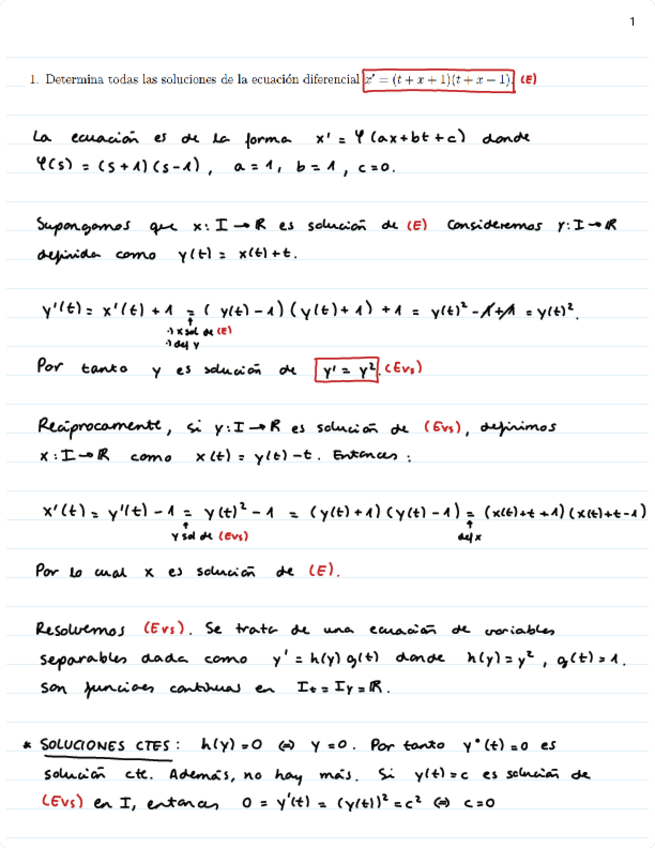 1
1. Determina todas las soluciones de la ecuación diferencial x' = (t + x + 1)(t + x − 1). (E)
La ecuación es de la forma x' = φ(ax+bt+c) donde
φ(s) = (s+1)(s-1), a=1, b=1, c=0.
Supongamos que x: I → ℝ es solución de (E) Consideremos y: I → ℝ
definida como y(t) = x(t)+t.
y'(t) = x'(t) + 1 = (y(t)-1)(y(t)+1) + 1 = y(t)² - 1 + 1 = y(t)².
·) x sol de (E)
·) def y
Por tanto y es solución de y' = y². (Evs)
Recíprocamente, si y: I → ℝ es solución de (Evs), definimos
x: I → ℝ como x(t) = y(t) - t. Entonces:
x'(t) = y'(t) - 1 = y(t)² - 1 = (y(t)+1)(y(t)-1) = (x(t)+t+1)(x(t)+t-1)
y sol de (Evs) def x
Por lo cual x es solución de (E).
Resolvemos (Evs). Se trata de una ecuación de variables
separables dada como y' = h(y)g(t) donde h(y)=y², g(t)=1.
Son funciones continuas en It = Iy = ℝ.
* SOLUCIONES CTES: h(y)=0 ⇔ y=0. Por tanto y*(t)=0 es
solución cte. Además, no hay más. Si y(t)=c es solución de
(Evs) en I, entonces 0 = y'(t) = (y(t))² = c² ⇔ c=0